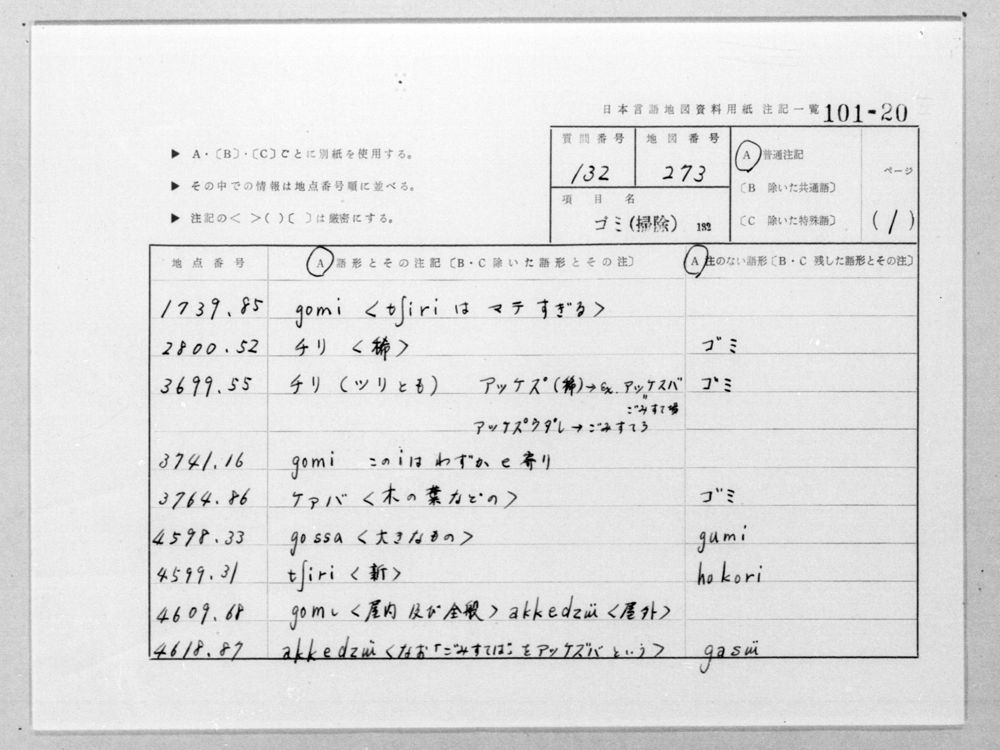 日本言語地図資料用紙 注記一覧 101-20
▶ A・〔B〕・〔C〕ごとに別紙を使用する。
▶ その中での情報は地点番号順に並べる。
▶ 注記の< >( )〔 〕は厳密にする。
質問番号 地図番号
132 273
項目名
ゴミ(掃除) 132
A 普通注記
〔B 除いた共通語〕
〔C 除いた特殊語〕
ページ
(1)
地点番号 A 語形とその注記〔B・C 除いた語形とその注〕 A 注のない語形〔B・C 残した語形とその注〕
1739.85 gomi <tʃiri は マテ すぎる>
2800.52 チリ <稀> ゴミ
3699.55 チリ (ツリとも) アッケズ(稀)→ex. アッケスバ ゴミ
〃ごみすて場
アッケズウダレ→ごみすてろ
3741.16 gomi このiはわずかe寄り
3764.86 ケァバ <木の葉などの> ゴミ
4598.33 gossa <大きなもの> gumi
4599.31 tʃiri <新> hokori
4609.68 gomɩ <屋内及び全般> akkedzɯ̈ <屋外>
4618.87 akkedzɯ̈ <なお「ごみすてば」をアッケズバという> gasɯ̈